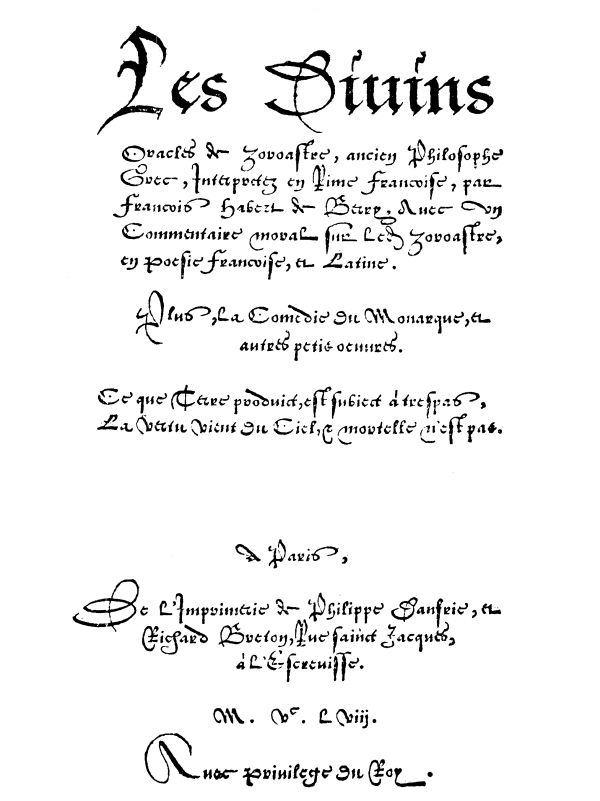 Les Diuins
Oracles de Zoroastre, ancien Philosophe
Grec, Interpretez en Rime Francoise, par
Francois Habert de Berry, Auec Vn
Commentaire moral sur led Zoroastre,
en poesie francoise, et Latine.
Plus, La Comedie du Monarque, et
autres petis oeuures.
Ce que Terre produict, est subiect à trespas,
La Vertu Vient du Ciel, & mortelle n'est pas.
A Paris,
De L'Imprimerie de Philippe Danfrie, et
Richard Breton, Rue sainct Jacques,
à L'Escreuisse.
M. Vc. L Viij.
Auec priuilege du Roy.